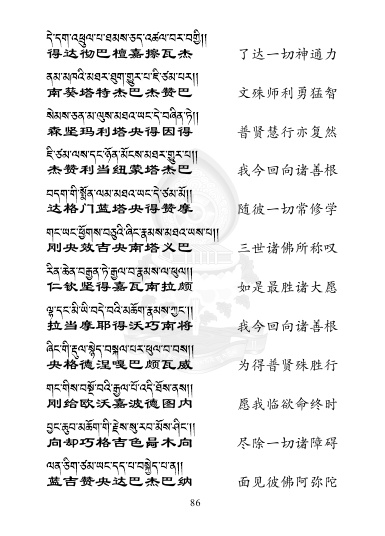 དེ་དག་འཕྲུལ་པ་ཐམས་ཅད་འཚལ་བར་བགྱི།།
得达彻巴檀嘉擦瓦杰 了达一切神通力
ནམ་མཁའི་མཐར་ཐུག་གྱུར་པ་ཇི་ཙམ་པར།།
南葵塔特杰巴杰赞巴 文殊师利勇猛智
སེམས་ཅན་མ་ལུས་མཐའ་ཡང་དེ་བཞིན་ཏེ།།
森坚玛利塔央得因得 普贤慧行亦复然
ཇི་ཙམ་ལས་དང་ཉོན་མོངས་མཐར་གྱུར་པ།།
杰赞利当纽蒙塔杰巴 我今回向诸善根
བདག་གི་སྨོན་ལམ་མཐའ་ཡང་དེ་ཙམ་མོ།།
达格门蓝塔央得赞摩 随彼一切常修学
གང་ཡང་ཕྱོགས་བཅུའི་ཞིང་རྣམས་མཐའ་ཡས་པ།།
刚央效吉央南塔义巴 三世诸佛所称叹
རིན་ཆེན་བརྒྱན་ཏེ་རྒྱལ་བ་རྣམས་ལ་ཕུལ།།
仁钦坚得嘉瓦南拉颇 如是最胜诸大愿
ལྷ་དང་མི་ཡི་བདེ་བའི་མཆོག་རྣམས་ཀྱང་།།
拉当摩耶得沃巧南将 我今回向诸善根
ཞིང་གི་རྡུལ་སྙེད་བསྐལ་པར་ཕུལ་བ་བས།།
央格德涅嘎巴颇瓦威 为得普贤殊胜行
གང་གིས་བསྔོ་བའི་རྒྱལ་པོ་འདི་ཐོས་ནས།།
刚给欧沃嘉波德图内 愿我临欲命终时
བྱང་ཆུབ་མཆོག་གི་རྗེས་སུ་རབ་མོས་ཤིང་།།
向却巧格吉色局木向 尽除一切诸障碍
ལན་ཅིག་ཙམ་ཡང་དད་པ་བསྐྱེད་པ་ན།།
蓝吉赞央达巴杰巴纳 面见彼佛阿弥陀
86